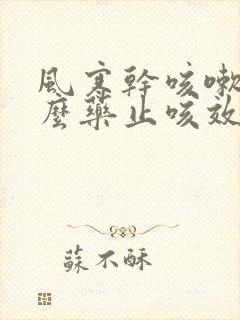 風寒幹咳嗽
麼藥止咳效
蘇不酥